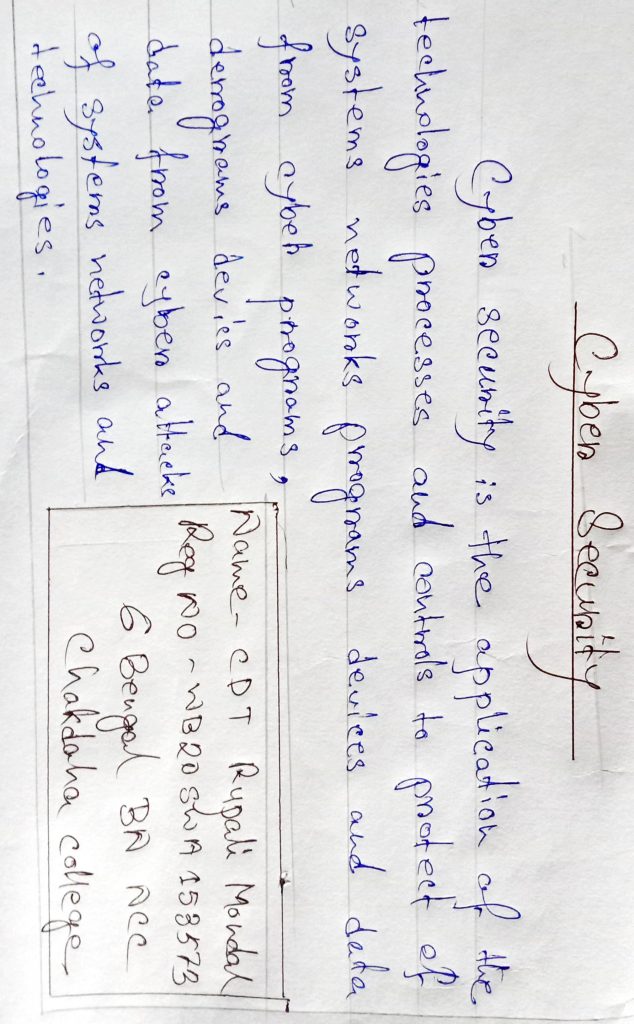 Cyber Security
Cyber security is the application of the
technologies processes and controls to protect of
systems networks programs devices and data
from cyber programs,
derrograms devics and
data from cyber attacks
of systems networks and
technologies.
Name- CDT Rupali Mondal
Reg No - WB20SWA153573
6 Bengal BN NCC
Chakdaha College